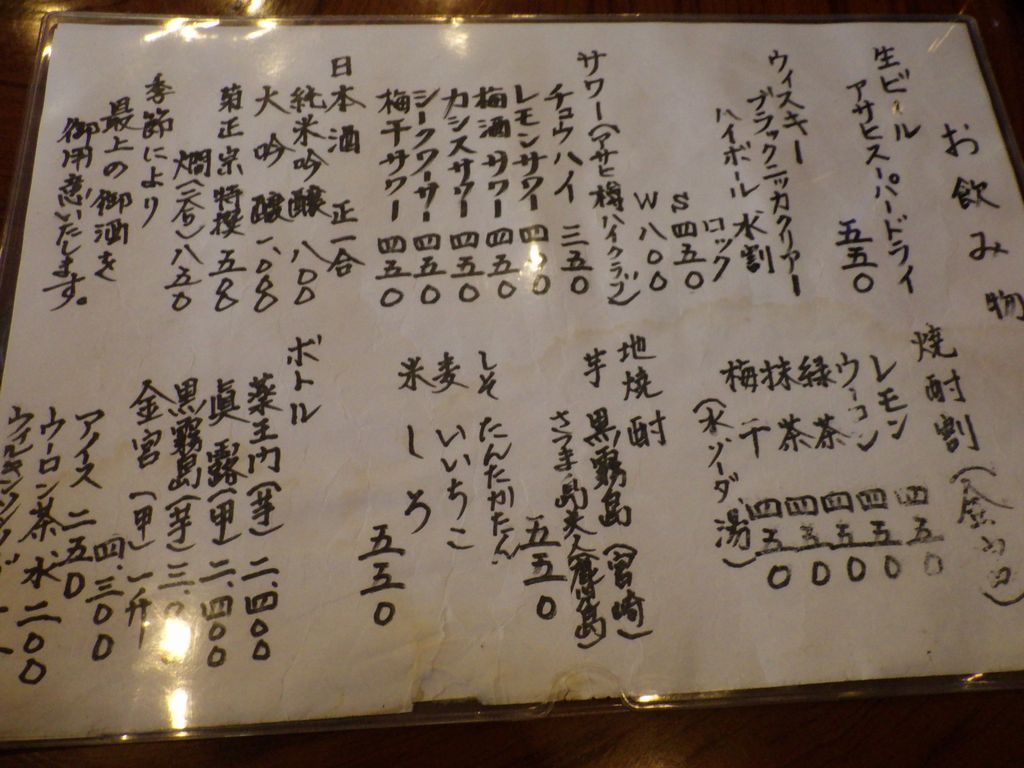 お飲み物
生ビール
アサヒスーパードライ
五五〇
ウィスキー
ブラックニッカクリアー
ハイボール 水割
ロック
S 四五〇
W 八〇〇
サワー(アサヒ樽ハイクラブ)
チョウハイ 三五〇
レモンサワー 四〇〇
梅酒サワー 四五〇
カシスサワー 四五〇
シークワーサー 四五〇
梅干サワー 四五〇
日本酒 正一合
純米吟醸 八〇〇
大吟醸 一、〇〇〇
菊正宗特撰 五〇〇
燗(二合) 八五〇
季節により
最上の御酒を
御用意いたします。
焼酎割(金宮)
レモン 四五〇
ウーロン 四五〇
緑茶 四五〇
抹茶 四五〇
梅干 四五〇
(水、ソーダ、湯)
地焼酎
芋 黒霧島(宮崎)
さつま島夫人(鹿児島)
五五〇
しそ たんたかたん
麦 いいちこ
米 しろ
五五〇
ボトル
薬王内(芋) 二、四〇〇
眞露(甲) 二、四〇〇
黒霧島(芋) 三、
金宮(甲)一升
四、三〇〇
アイス 二五〇
ウーロン茶、水 二〇〇